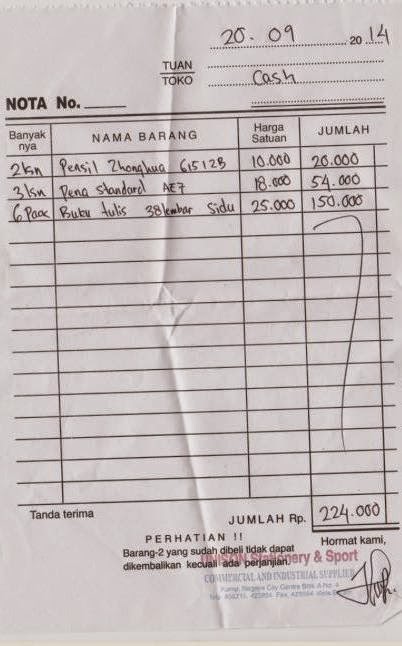 20 - 09 2014
TUAN
TOKO
Cash
NOTA No.
Banyak nya NAMA BARANG Harga Satuan JUMLAH
2 ksn Pensil Zhonghua 6151 2B 10.000 20.000
3 ksn Pena Standard AE7 18.000 54.000
6 Pack Buku tulis 38 lembar Sidu 25.000 150.000
Tanda terima
JUMLAH Rp. 224.000
PERHATIAN !!
Hormat kami,
Barang-2 yang sudah dibeli tidak dapat
dikembalikan kecuali ada perjanjian.
UNISON Stationery & Sport
COMMERCIAL AND INDUSTRIAL SUPPLIER